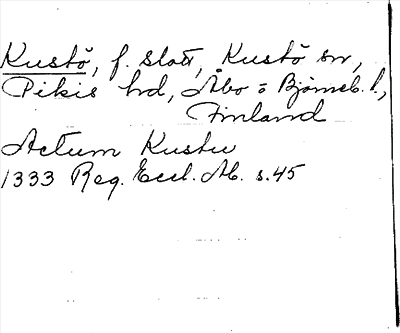 Kustö, f. slott, Kustö sn,
Pikis hd, Åbo o Björneb. l.,
Finland
Actum Kustu
1333 Reg. Eccl. Ab. s. 45